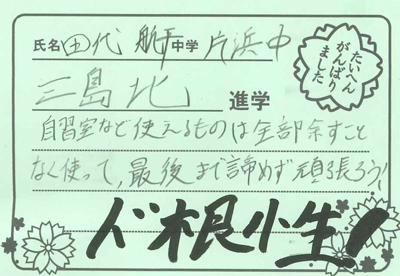 氏名 田代 中学 片浜中
たいへん
がんばり
ました
三島北 進学
自習室など使えるものは全部余すこと
なく使って,最後まで諦めず頑張ろう!
ド根性!